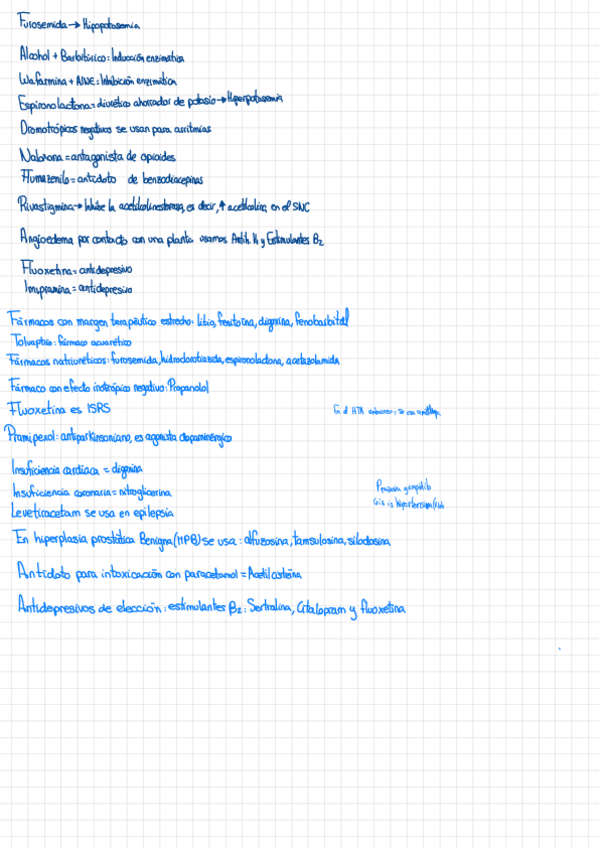 Furosemida → Hipopotasemia
Alcohol + Barbitúrico: Inducción enzimática
Wafarmina + AINE: Inhibición enzimática
Espironolactona = diurético ahorrador de potasio → Hiperpotasemia
Dromotrópicos negativos se usan para arritmias
Naloxona = antagonista de opioides
Flumazenilo = antídoto de benzodiacepinas
Rivastigmina → Inhibe la acetilcolinesterasa, es decir, ↑ acetilcolina en el SNC
Angioedema por contacto con una planta usamos Antih. H₁ y Estimulantes B₂
Fluoxetina = antidepresivo
Imipramina = antidepresivo
Fármacos con margen terapéutico estrecho: litio, fenitoína, digoxina, fenobarbital
Tolvaptán: fármaco acuarético
Fármacos natriuréticos: furosemida, hidroclorotiazida, espironolactona, acetazolamida
Fármaco con efecto inotrópico negativo: Propanolol
Fluoxetina es ISRS
En el HTA embarazo: se usa
Pramipexol: antiparkinsoniano, es agonista dopaminérgico
Insuficiencia cardíaca = digoxina
Insuficiencia coronaria = nitroglicerina
Levetiracetam se usa en epilepsia
En hiperplasia prostática Benigna (HPB) se usa: alfuzosina, tamsulosina, silodosina
Antídoto para intoxicación con paracetamol = Acetilcisteína
Antidepresivos de elección: estimulantes B₂: Sertralina, Citalopram y fluoxetina